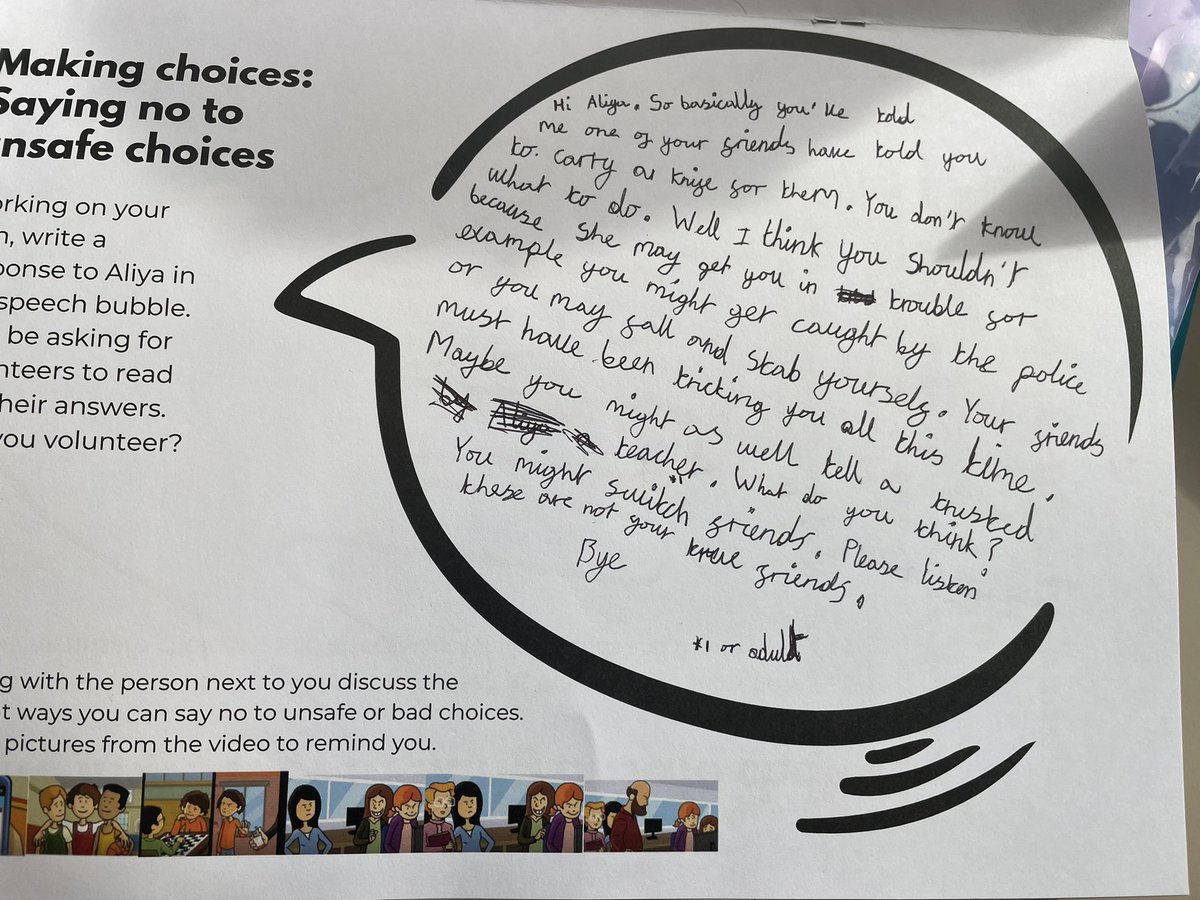 Making choices:
Saying no to
unsafe choices
orking on your
n, write a
ponse to Aliya in
speech bubble.
be asking for
nteers to read
heir answers.
you volunteer?
Hi Aliya. So basically you've told
me one of your friends have told you
to. carry a knife for them. You don't know
what to do. Well I think you shouldn't
because she may get you in trouble for
example you might get caught by the police
or you may fall and stab yourself. Your friends
must have been tricking you all this time.
Maybe you might as well tell a trusted
teacher. What do you think?
You might switch friends. Please listen
these are not your true friends.
Bye
*1 or adult
g with the person next to you discuss the
t ways you can say no to unsafe or bad choices.
pictures from the video to remind you.